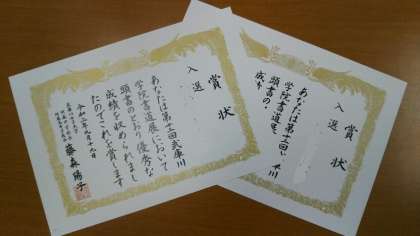 賞状
入選
あなたは第十二回武庫川
学院書道展において
頭書のとおり優秀な
成績を収められまし
たのでこれを賞します
令和二年九月十九日
藤森陽子
賞状
入選
あなたは第十二回 川
学院書道展
頭書の
成